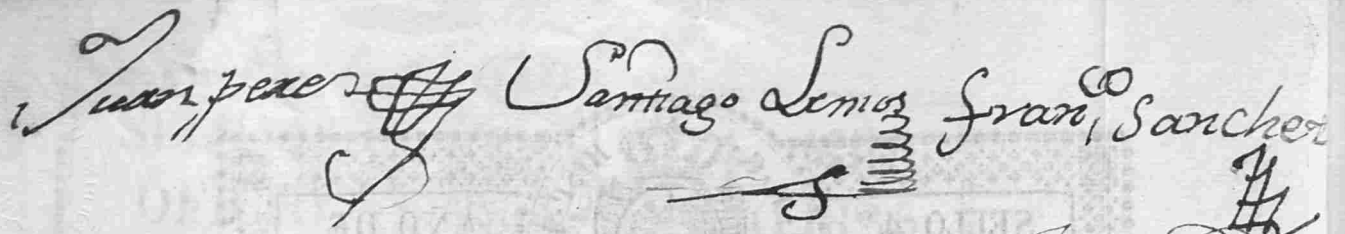 Juan perez Santiago Lemos fran.co Sanchez